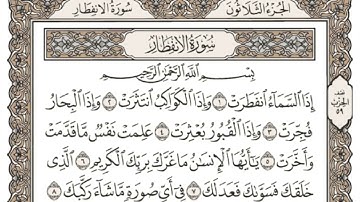 الجزء الثلاثون سورة الانفطار
سورة الانفطار
بسم الله الرحمن الرحيم
إِذَا السَّمَاءُ انفَطَرَتْ ١ وَإِذَا الْكَوَاكِبُ انتَثَرَتْ ٢ وَإِذَا الْبِحَارُ
فُجِّرَتْ ٣ وَإِذَا الْقُبُورُ بُعْثِرَتْ ٤ عَلِمَتْ نَفْسٌ مَّا قَدَّمَتْ
وَأَخَّرَتْ ٥ يَٰأَيُّهَا الْإِنسَٰنُ مَا غَرَّكَ بِرَبِّكَ الْكَرِيمِ ٦ الَّذِي
خَلَقَكَ فَسَوَّىٰكَ فَعَدَلَكَ ٧ فِي أَيِّ صُورَةٍ مَّا شَاءَ رَكَّبَكَ ٨
نصف
الحزب
٥٩